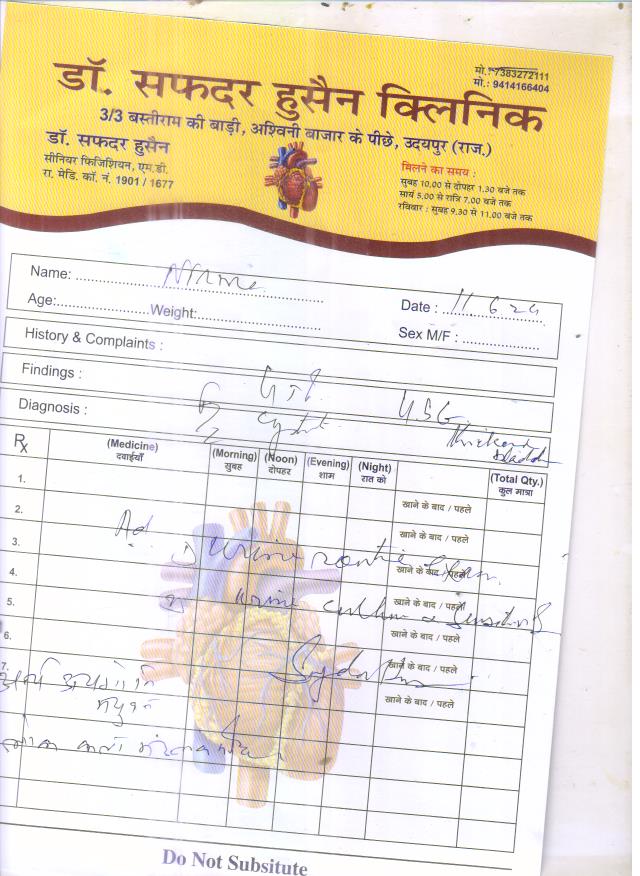 मो.: 7383272111
मो.: 9414166404
डॉ. सफदर हुसैन क्लिनिक
3/3 बस्तीराम की बाड़ी, अश्विनी बाजार के पीछे, उदयपुर (राज.)
डॉ. सफदर हुसैन
सीनियर फिजिशियन, एम.डी.
रा. मेडि. कॉ. नं. 1901 / 1677
मिलने का समय :
सुबह 10.00 से दोपहर 1.30 बजे तक
सायं 5.00 से रात्रि 7.00 बजे तक
रविवार : सुबह 9.30 से 11.00 बजे तक
Name:
Date : 11 6 24
Age: Weight:
Sex M/F :
History & Complaints :
Findings :
USG
Diagnosis :
Rx (Medicine) (Morning) (Noon) (Evening) (Night) (Total Qty.)
दवाईयाँ सुबह दोपहर शाम रात को कुल मात्रा
1. खाने के बाद / पहले
2. खाने के बाद / पहले
3. Ad 1) Urine routine Exam. खाने के बाद / पहले
4. खाने के बाद / पहले
5. 2) Urine culture & Sensitivity खाने के बाद / पहले
6. खाने के बाद / पहले
7. खाने के बाद / पहले
Do Not Subsitute